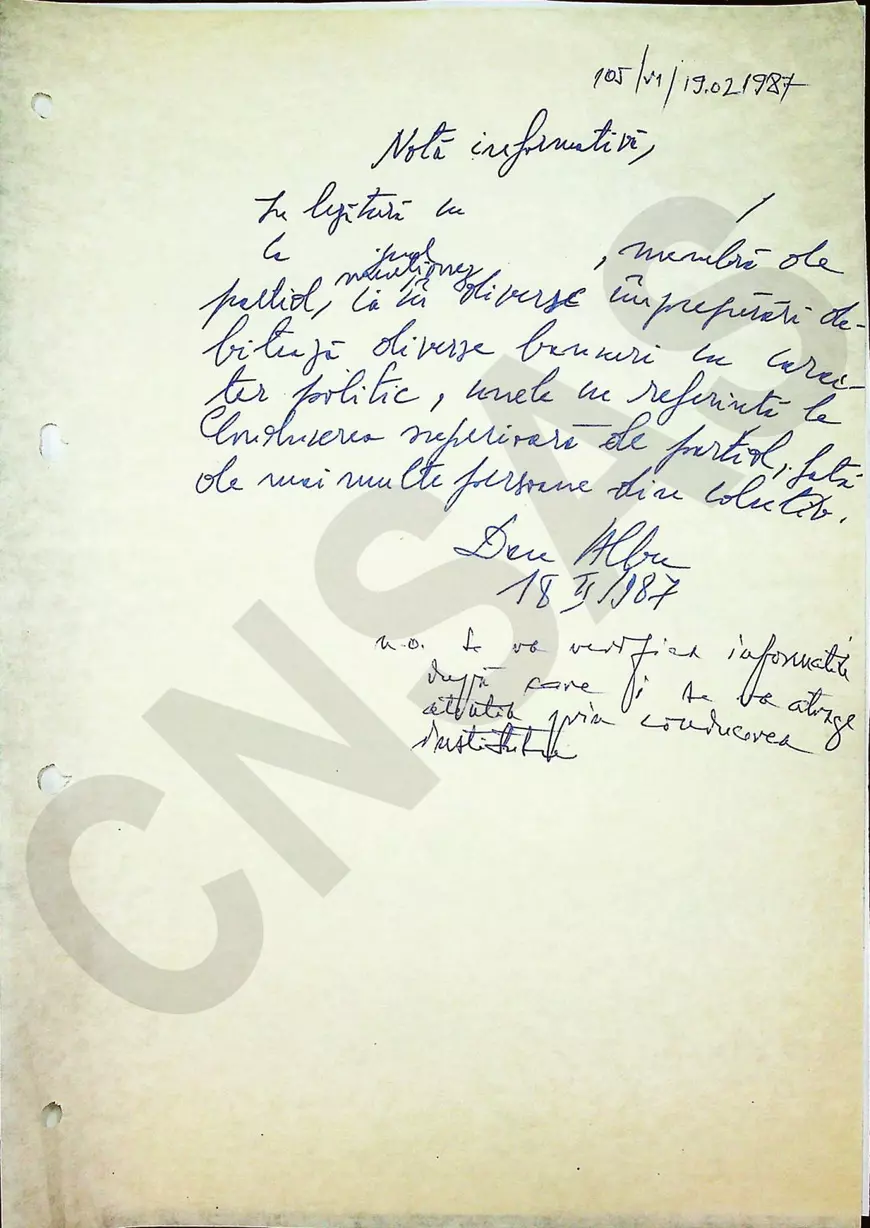 105/VI/19.02.1987
Notă informativă,
În legătură cu
la , membră de
menționez
partid, că în diverse împrejurări de-
bitează diverse bancuri cu carac-
ter politic, unele cu referință la
Conducerea superioară de partid, față
de mai multe persoane din colectiv.
Dan Albu
18 II 1987
n.o. Se va verifica informatiile
după care i se va atrage
atentia prin conducerea
institutului
CNSAS